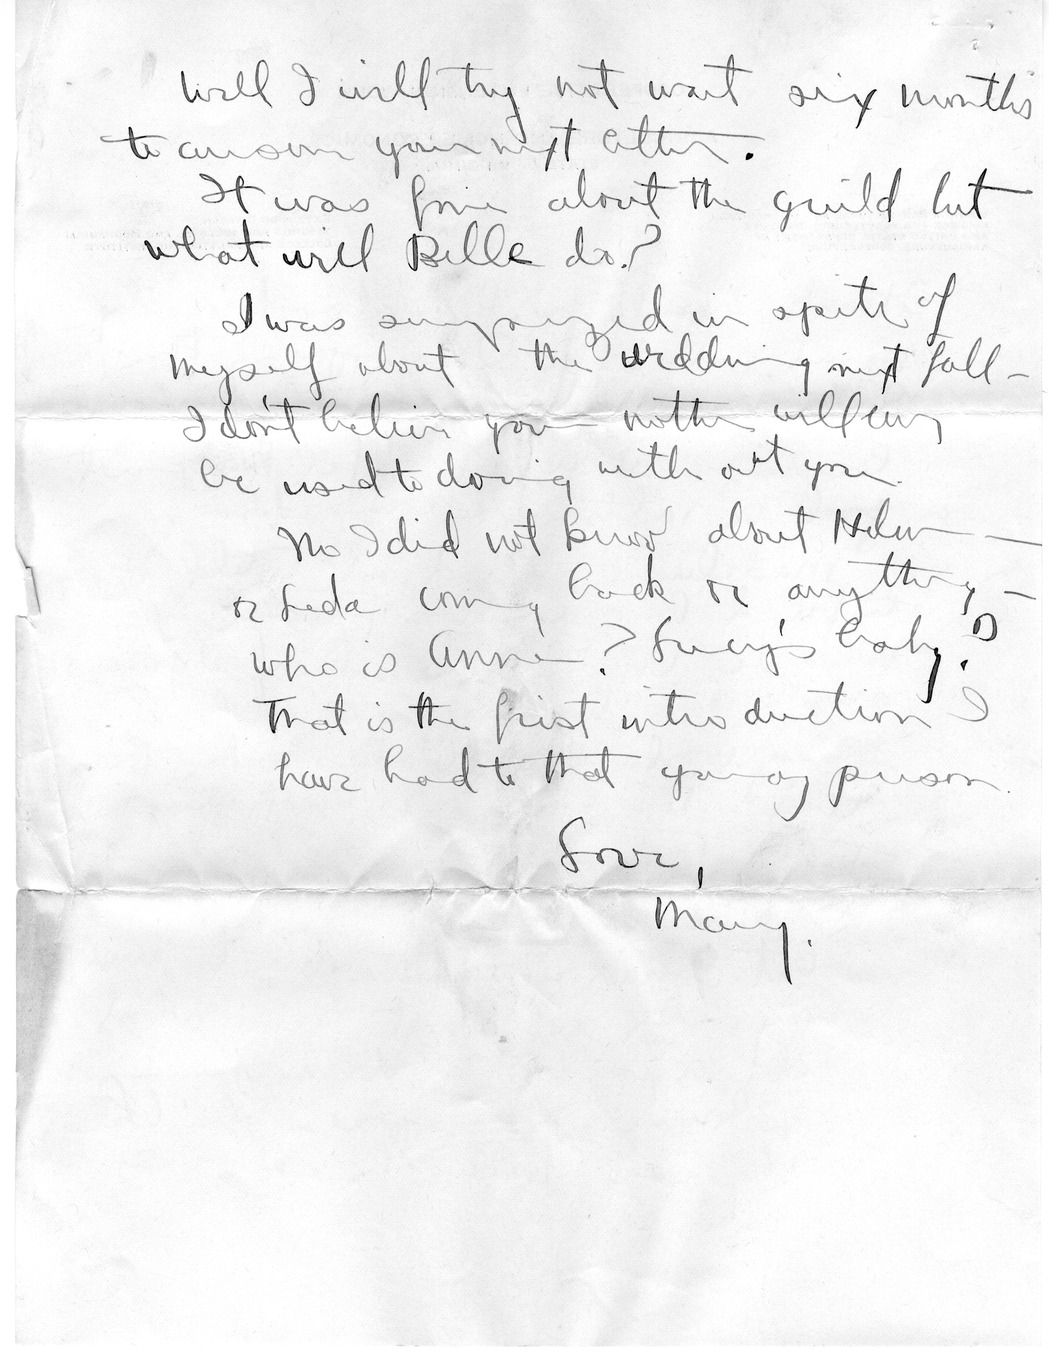 Well I will try not wait six months
to answer your next letter.
It was fine about the guild but
what will Belle do?
I was surprized in spite of
myself about the wedding next fall -
I don't believe your mother will ever
be used to doing with out you.
No I did not know about Helen -
or Leda coming back or anything -
who is Anne? Lucy's baby?
That is the first introduction I
have had to that young person.
Love,
Mary.